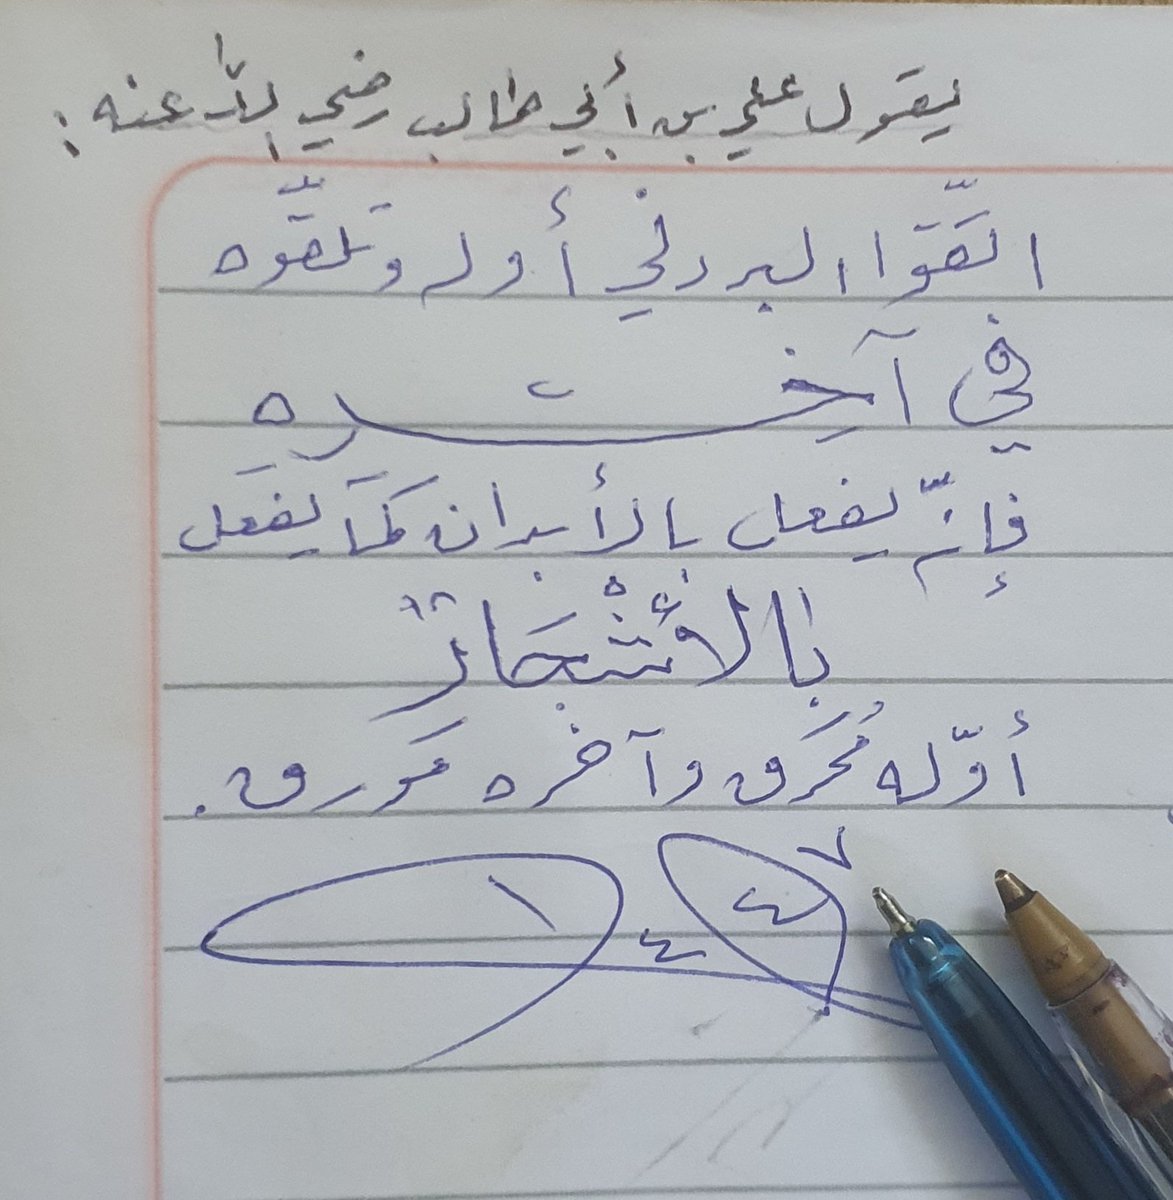 يقول علي بن أبي طالب رضي الله عنه :
اتّقَوا البرد في أوله وتلقّوه
في آخِره
فإنّه يفعل بالأبدان كمَا يفعل
بالأشْجَار
أوّله مُحرَق وآخره مَورق .